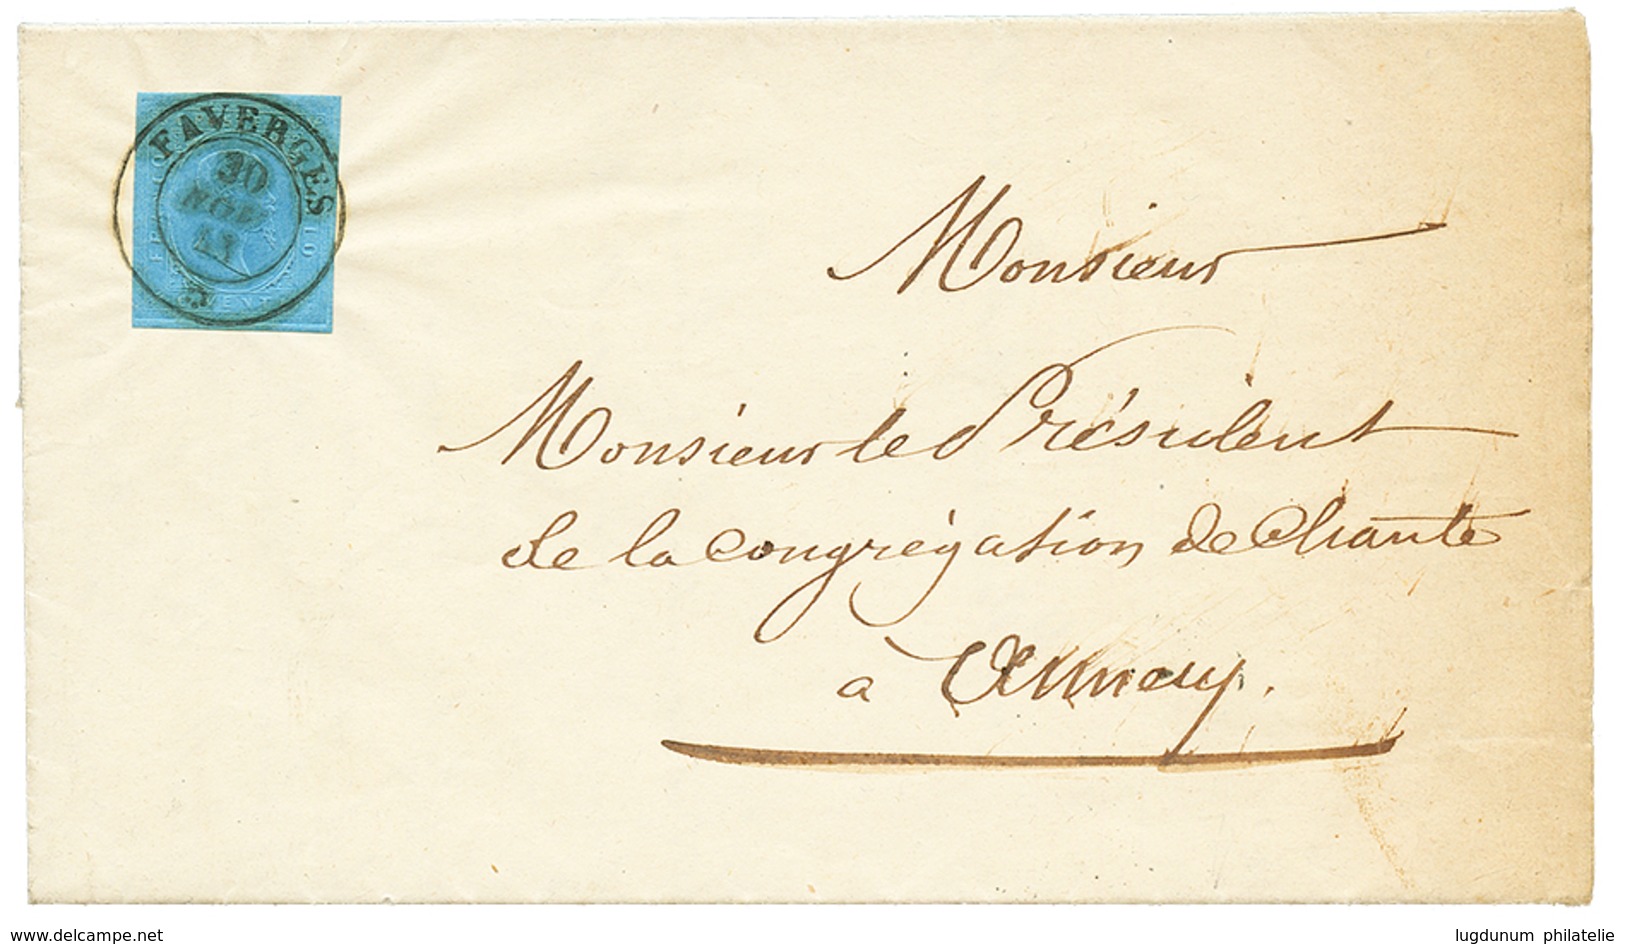 FAVERGES
30
NOV
VENT
Monsieur
Monsieur le Président
de la Congrégation de Charité
à Annecy.
www.delcampe.net
lugdunum philatelie